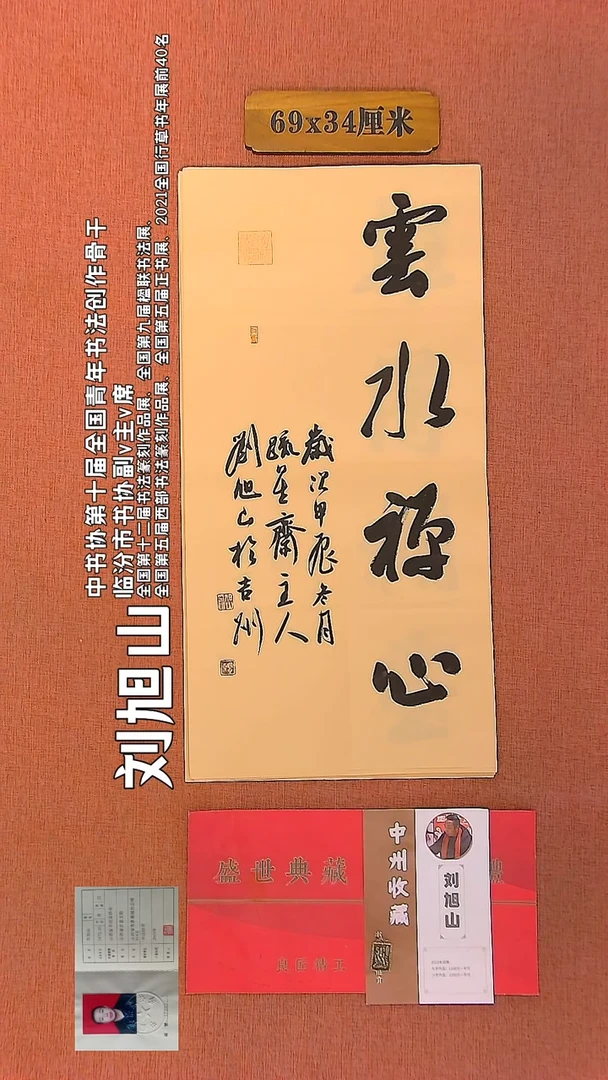 69x34厘米
雲水禅心
歳次甲辰冬月
疏星齋主人
劉旭山於吉州
刘旭山
中书协第十届全国青年书法创作骨干
临汾市书协副v主v席
全国第十二届书法篆刻作品展、全国第九届楹联书法展、
全国第五届西部书法篆刻作品展、全国第五届正书展、2021全国行草书年展前40名
盛世典藏
中州收藏
刘旭山